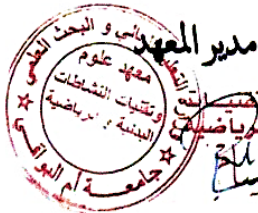 مدير المعهد
العالي و البحث العلمي
معهد علوم
وتقنيات النشاطات
البدنية و الرياضية
جامعة أم البواقي